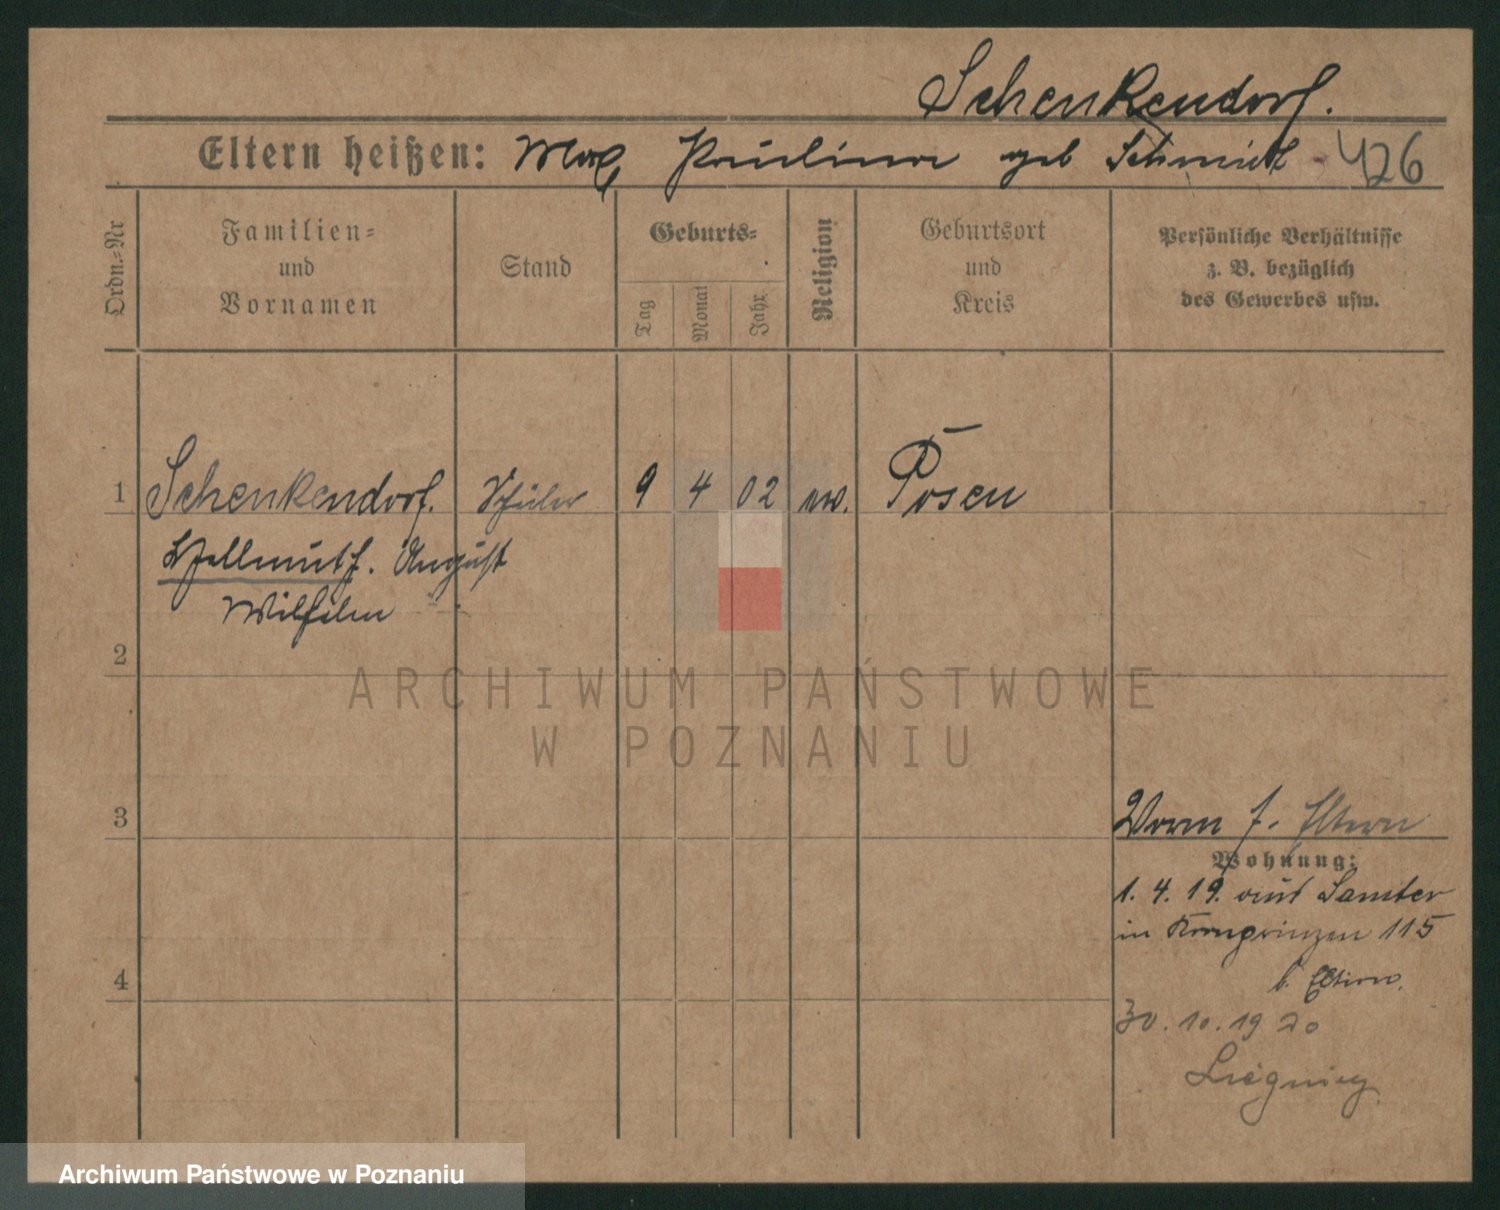 Schenkendorf.
Eltern heißen: Max, Paulina geb Schmidt 426
Ordn.-Nr
Familien- und Vornamen
Stand
Geburts-
Tag
Monat
Jahr.
Religion
Geburtsort und Kreis
Persönliche Verhältnisse
z. B. bezüglich
des Gewerbes usw.
1 Schenkendorf. Schüler 9 4 02 ev. Posen
Hellmuth. August
Wilhelm
2
ARCHIWUM PAŃSTWOWE
W POZNANIU
3
Eltern
Wohnung:
1. 4. 19. aus Samter
in Kronprinzen 115
b. Eltern.
4
30. 10. 1920
Liegnitz
Archiwum Państwowe w Poznaniu